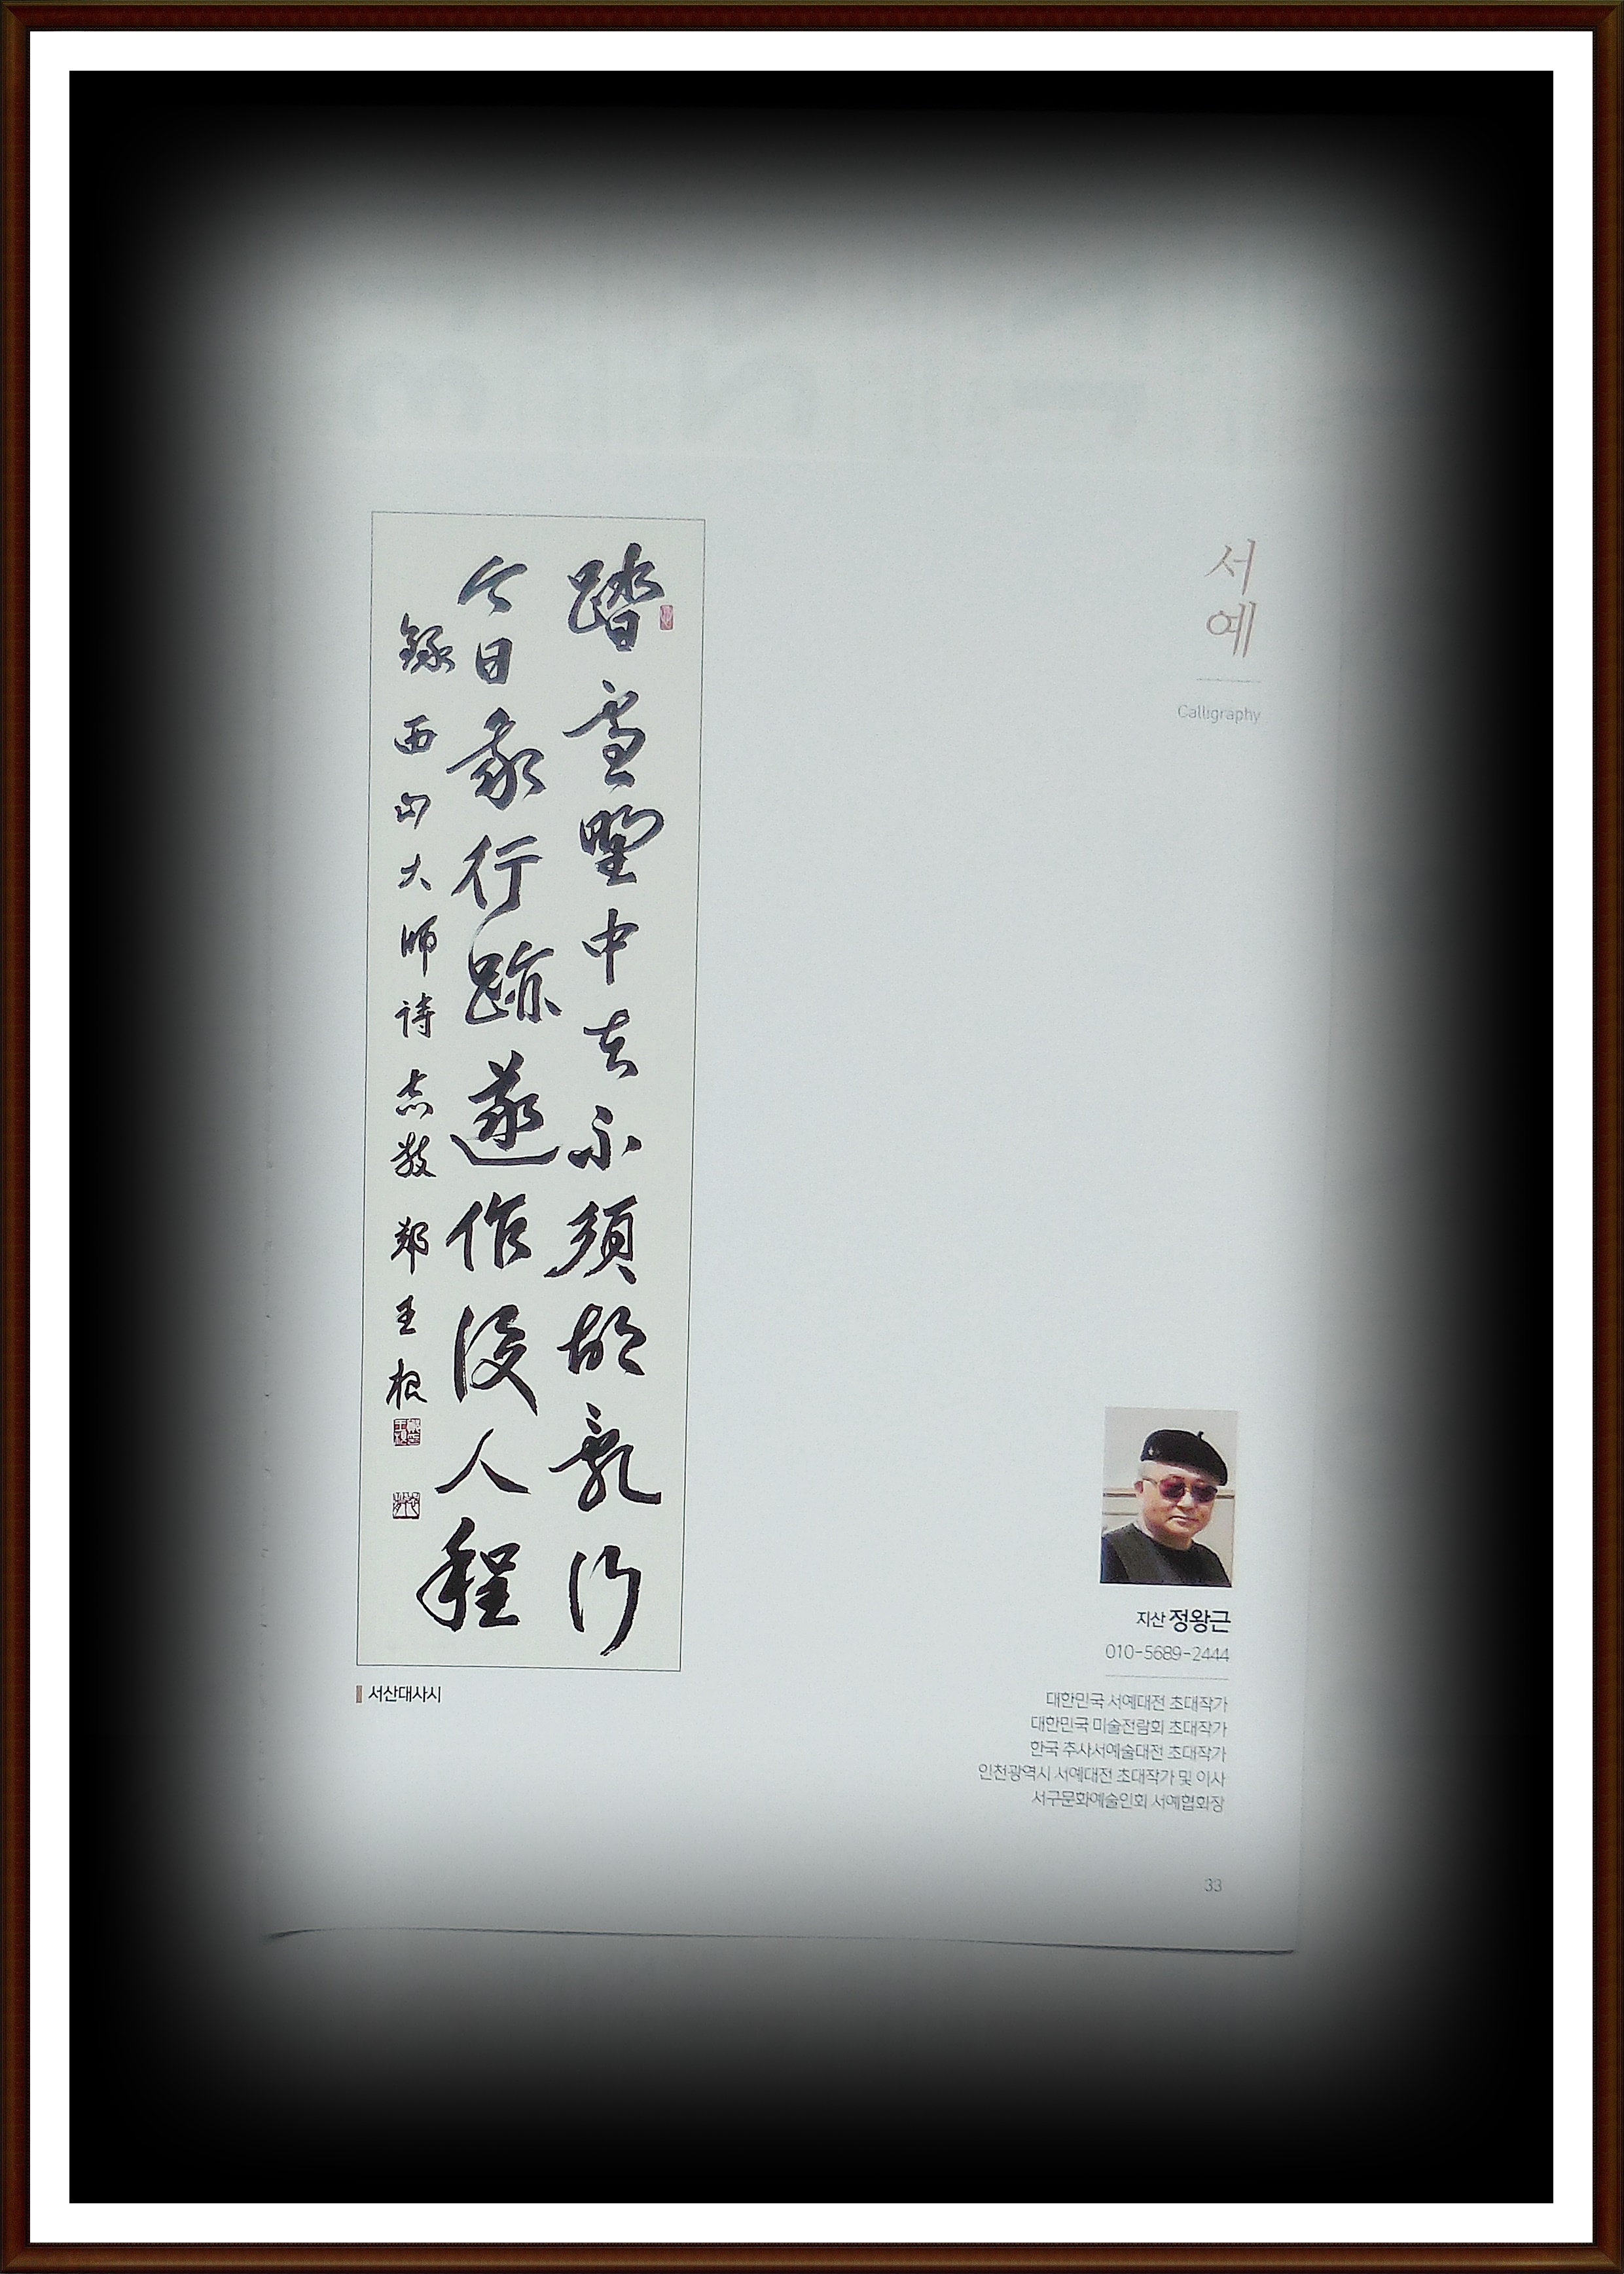 서예
Calligraphy
踏雪野中去不須胡亂行
今日我行跡遂作後人程
錄西山大師詩 鄭王根
서산대사시
지산 정왕근
010-5689-2444
대한민국 서예대전 초대작가
대한민국 미술전람회 초대작가
한국 추사서예술대전 초대작가
인천광역시 서예대전 초대작가 및 이사
서구문화예술인회 서예협회장
33